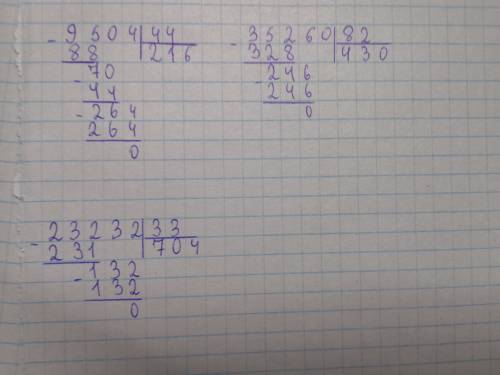 - 9504 | 44
88 | 216
- 70
44
- 264
264
0
- 35260 | 82
328 | 430
- 246
246
0
- 23232 | 33
231 | 704
- 132
132
0